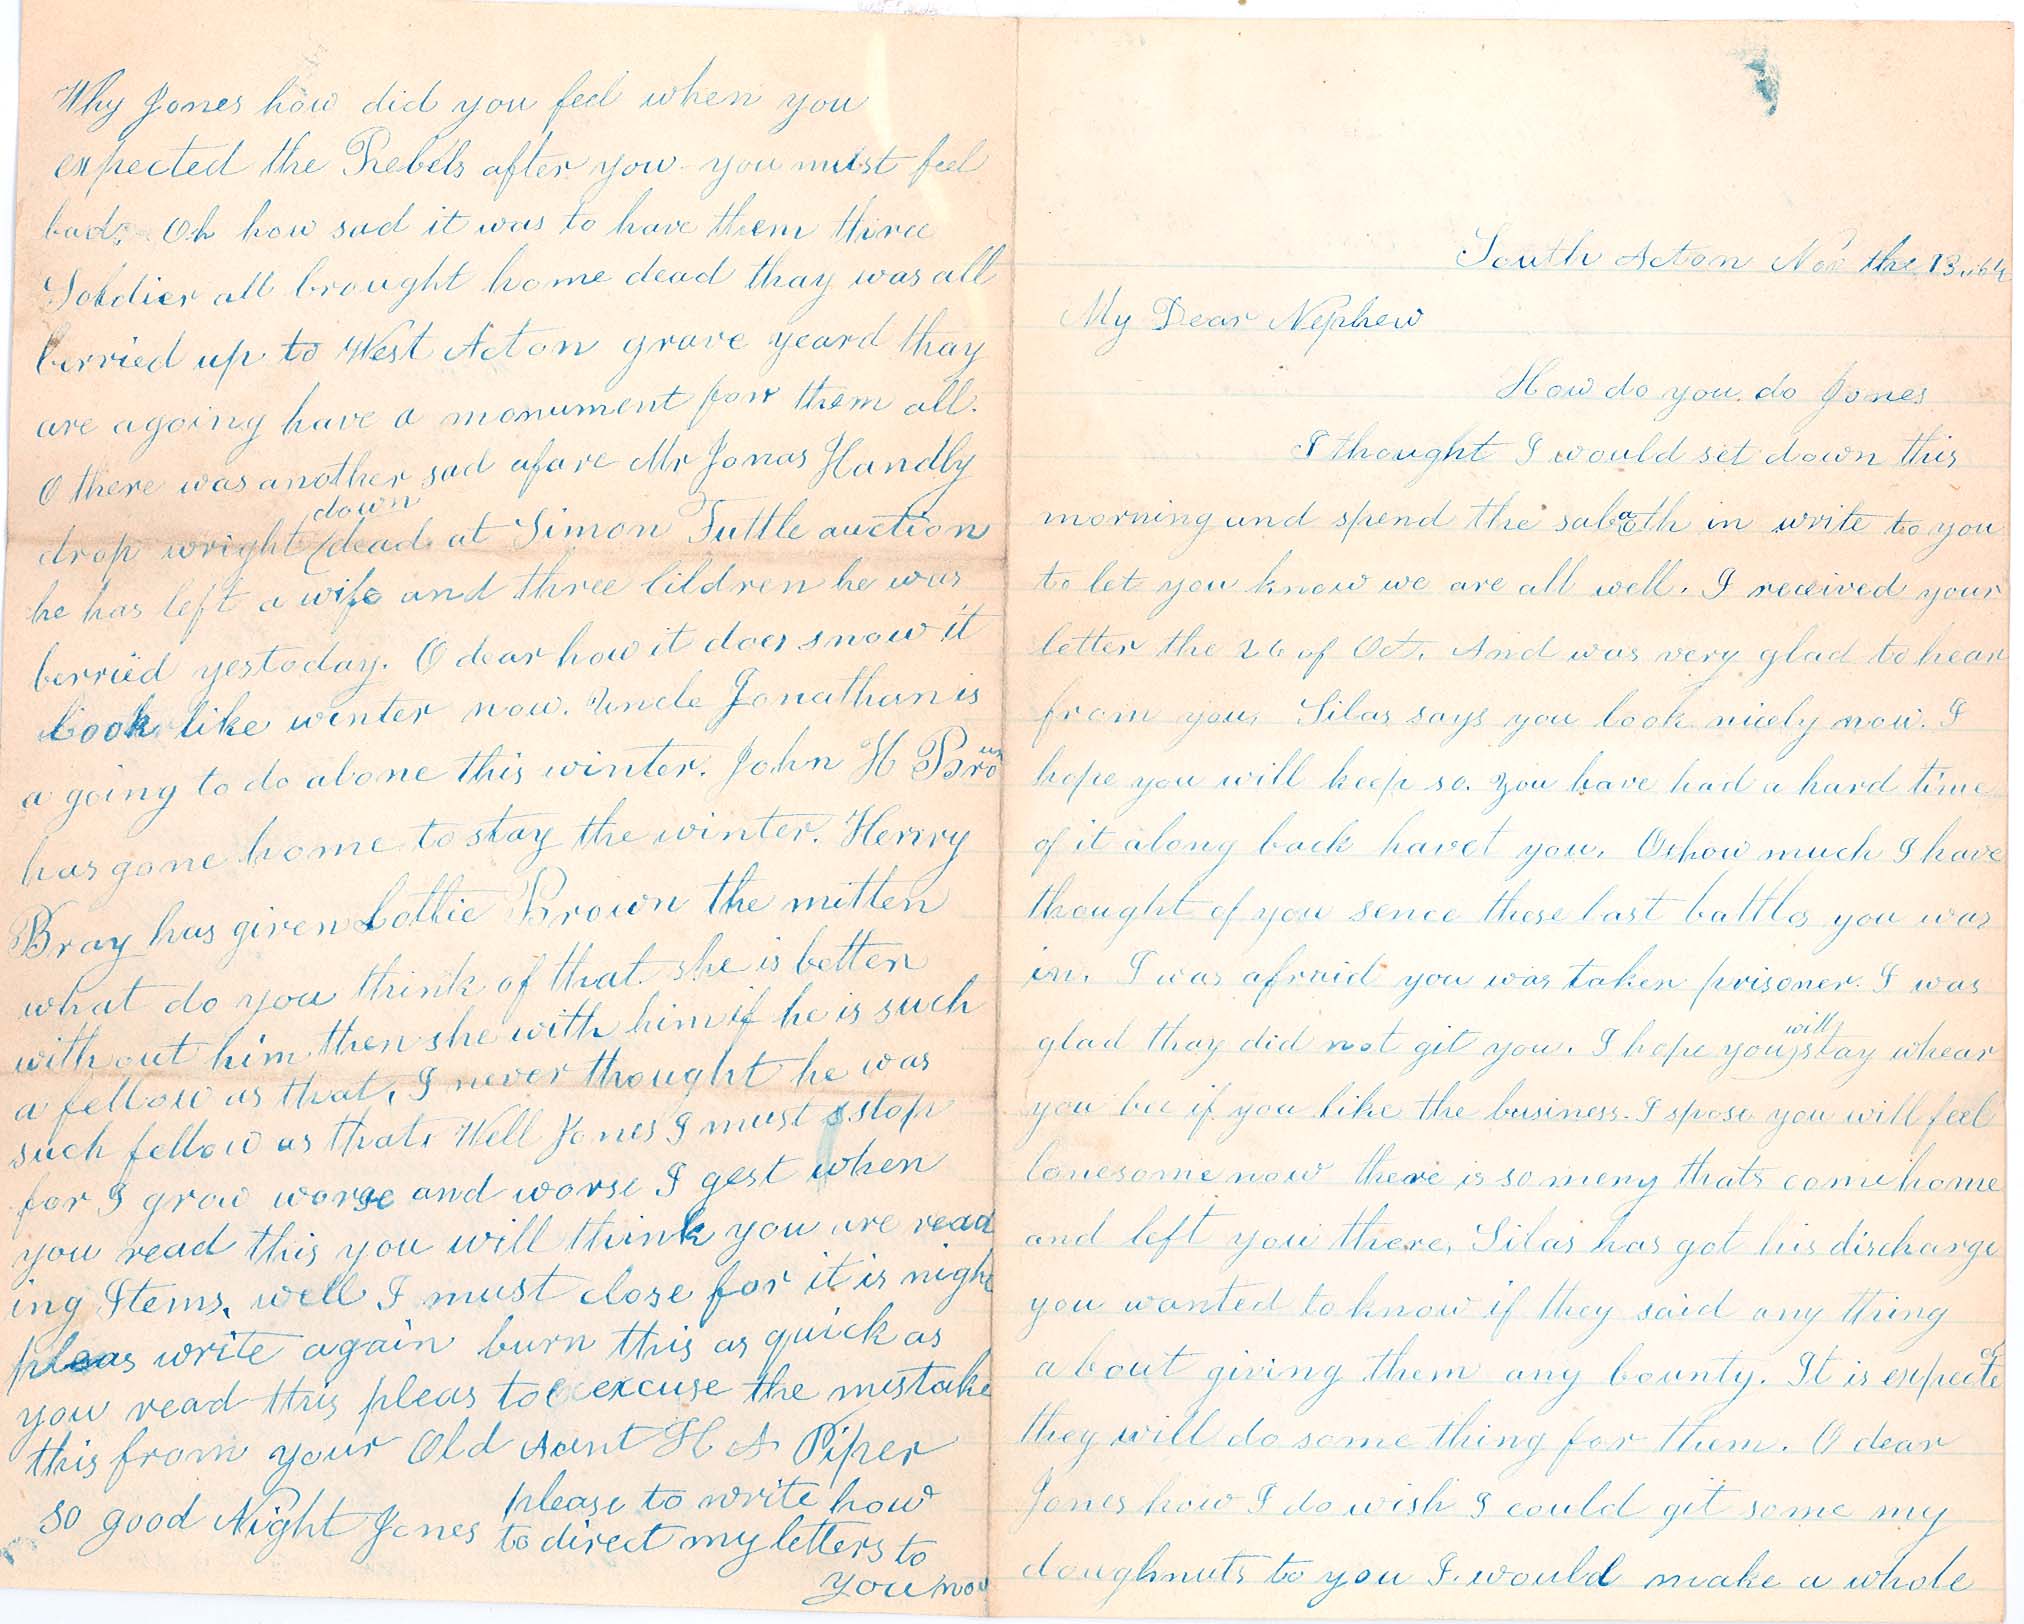 South Acton Nov the 13, 64
My Dear Nephew
How do you do Jones
I thought I would set down this
morning and spend the sabath in write to you
to let you know we are all well. I received your
letter the 26 of Oct. And was very glad to hear
from you, Silas says you look nicely now. I
hope you will keep so. you have had a hard time
of it along back havet you. Oh how much I have
thought of you sence those last battles you was
in. I was afraid you was taken prisoner. I was
glad thay did not git you. I hope you will stay whear
you bee if you like the business. I spose you will feel
lonesome now there is so meny thats come home
and left you there, Silas has got his discharge
you wanted to know if they said any thing
about giving them any bounty. It is expected
they will do some thing for them. O dear
Jones how I do wish I could git some my
doughnuts to you I would make a whole
Why Jones how did you feel when you
expected the Rebels after you you must feel
bad. Oh how sad it was to have them three
Soldier all brought home dead thay was all
berried up to West Acton grave yeard thay
are agoing have a monument for them all.
O there was another sad afare Mr Jonas Handly
drop wright down dead at Simon Tuttle auction
he has left a wife and three lildren he was
berried yestoday. O dear how it does snow it
look like winter now. Uncle Jonathan is
a going to do alone this winter. John H Brown
has gone home to stay the winter. Henry
Bray has given Lottie Brown the mitten
what do you think of that. she is better
without him then she with him if he is such
a fellow as that, I never thought he was
such fellow as that. Well Jones I must stop
for I grow worse and worse I gest when
you read this you will think you are read
ing Items, well I must close for it is night
pleas write again burn this as quick as
you read this pleas to excuse the mistake
this from your Old Aunt H A Piper
so good Night Jones
please to write how
to direct my letters to
you now